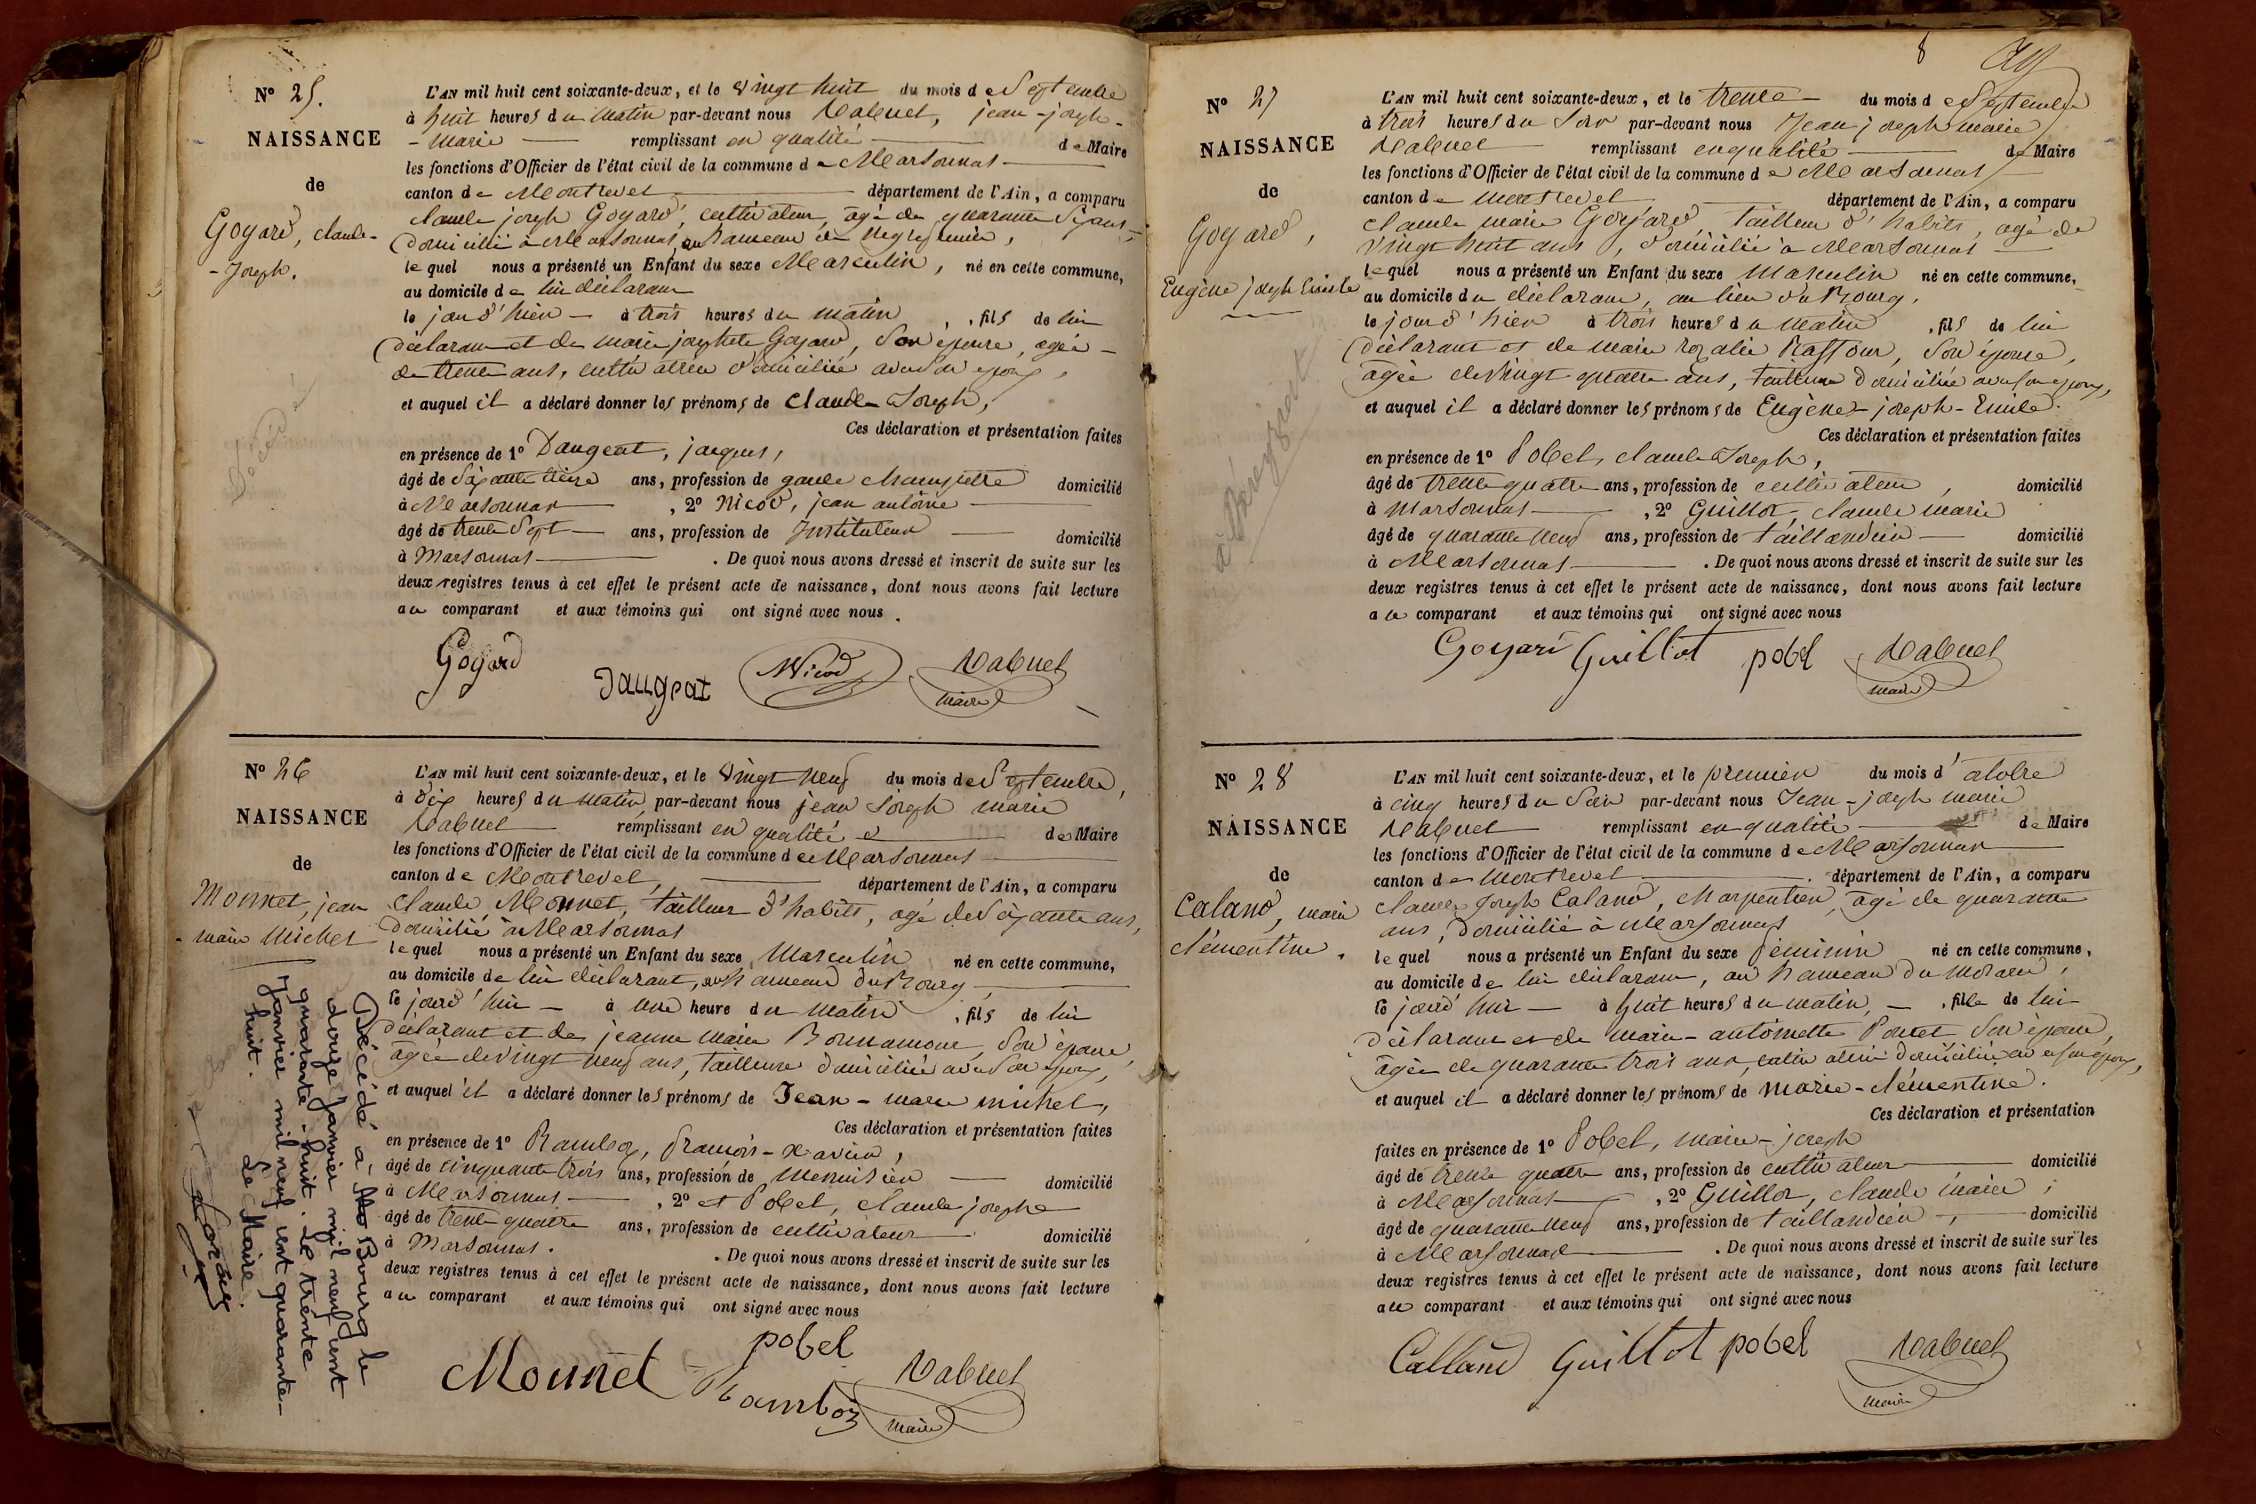 Nº 25.
NAISSANCE
de
Goyard, claude-
-Joseph.
L'AN mil huit cent soixante-deux, et le vingt huit du mois de Septembre
à huit heures du matin par-devant nous Rabuel, jean-joseph-
-marie remplissant en qualité de Maire
les fonctions d'Officier de l'état civil de la commune de Marsonnas
canton de Montrevel département de l'Ain, a comparu
claude joseph Goyard, cultivateur, âgé de quarante ans,
domicilié à Marsonnas, au hameau de
lequel nous a présenté un Enfant du sexe Masculin, né en cette commune,
au domicile de lui déclarant
le jour d'hier à trois heures du matin, fils de lui
déclarant et de marie josephete Goyard, son épouse, agée
de trente ans, cultivatrice domiciliée avec son époux,
et auquel il a déclaré donner les prénoms de claude Joseph,
Ces déclaration et présentation faites
en présence de 1º Daugeat, jacques,
âgé de soixante treize ans, profession de garde champêtre domicilié
à Marsonnas, 2º Nicod, jean antoine
âgé de trente sept ans, profession de Instituteur domicilié
à Marsonnas. De quoi nous avons dressé et inscrit de suite sur les
deux registres tenus à cet effet le présent acte de naissance, dont nous avons fait lecture
au comparant et aux témoins qui ont signé avec nous.
Goyard Daugeat Nicod Rabuel
maire
Nº 26
NAISSANCE
de
Monnet, jean
-marie Michel
Décédé à Bourg le
douze Janvier mil neuf cent
quarante-huit. Le trente
Janvier mil neuf cent quarante-
huit. Le Maire.
L'AN mil huit cent soixante-deux, et le vingt neuf du mois de Septembre,
à dix heures du matin par-devant nous jean Joseph marie
Rabuel remplissant en qualité de Maire
les fonctions d'Officier de l'état civil de la commune de Marsonnas
canton de Montrevel, département de l'Ain, a comparu
claude Monnet, tailleur d'habits, agé de soixante ans,
domicilié à Marsonnas
lequel nous a présenté un Enfant du sexe Masculin né en cette commune,
au domicile de lui déclarant, au hameau du Bourg,
le jourd'hui à une heure du matin, fils de lui
déclarant et de jeanne marie Bonnamour, son épouse,
âgée de vingt neuf ans, tailleuse domiciliée avec son époux,
et auquel il a déclaré donner les prénoms de Jean-marie michel,
Ces déclaration et présentation faites
en présence de 1º Ramboz, françois-xavier,
âgé de cinquante trois ans, profession de Menuisier domicilié
à Marsonnas, 2º et Pobel, claude josephe
âgé de trente quatre ans, profession de cultivateur domicilié
à Marsonnas. De quoi nous avons dressé et inscrit de suite sur les
deux registres tenus à cet effet le présent acte de naissance, dont nous avons fait lecture
au comparant et aux témoins qui ont signé avec nous
Monnet pobel Ramboz Rabuel
maire
8
Nº 27
NAISSANCE
de
Goyard,
Eugène joseph Emile
L'AN mil huit cent soixante-deux, et le trente du mois de Septembre
à trois heures du soir par-devant nous Jean joseph marie
Rabuel remplissant en qualité de Maire
les fonctions d'Officier de l'état civil de la commune de Marsonnas
canton de Montrevel département de l'Ain, a comparu
claude marie Goyard, tailleur d'habits, agé de
vingt huit ans, domicilié à Marsonnas
lequel nous a présenté un Enfant du sexe Masculin né en cette commune,
au domicile du déclarant, au lieu du Bourg,
le jour d'hier à trois heures du matin, fils de lui
déclarant et de marie rozalie Raffour, son épouse,
agée de vingt quatre ans, tailleuse domiciliée avec son époux,
et auquel il a déclaré donner les prénoms de Eugène-joseph-Emile.
Ces déclaration et présentation faites
en présence de 1º Pobel, claude Joseph,
âgé de trente quatre ans, profession de cultivateur, domicilié
à Marsonnas, 2º Guillot, claude marie
âgé de quarante neuf ans, profession de taillandier domicilié
à Marsonnas. De quoi nous avons dressé et inscrit de suite sur les
deux registres tenus à cet effet le présent acte de naissance, dont nous avons fait lecture
au comparant et aux témoins qui ont signé avec nous
Goyard Guillot pobel Rabuel
maire
Nº 28
NAISSANCE
de
Caland, marie
clémentine.
L'AN mil huit cent soixante-deux, et le premier du mois d'octobre
à cinq heures du soir par-devant nous Jean-joseph marie
Rabuel remplissant en qualité de Maire
les fonctions d'Officier de l'état civil de la commune de Marsonnas
canton de Montrevel. département de l'Ain, a comparu
claude Joseph Caland, charpentier, âgé de quarante
ans, domicilié à Marsonnas
lequel nous a présenté un Enfant du sexe féminin né en cette commune,
au domicile de lui déclarant, au hameau du,
le jourd'hui à huit heures du matin, fille de lui
déclarant et de marie-antoinette Poncet son épouse,
âgée de quarante trois ans, cultivatrice domiciliée avec son époux,
et auquel il a déclaré donner les prénoms de marie-clémentine.
Ces déclaration et présentation
faites en présence de 1º Pobel, marie-joseph
âgé de trente quatre ans, profession de cultivateur domicilié
à Marsonnas, 2º Guillot, claude marie,
âgé de quarante neuf ans, profession de taillandier, domicilié
à Marsonnas. De quoi nous avons dressé et inscrit de suite sur les
deux registres tenus à cet effet le présent acte de naissance, dont nous avons fait lecture
au comparant et aux témoins qui ont signé avec nous
Calland Guillot pobel Rabuel
maire